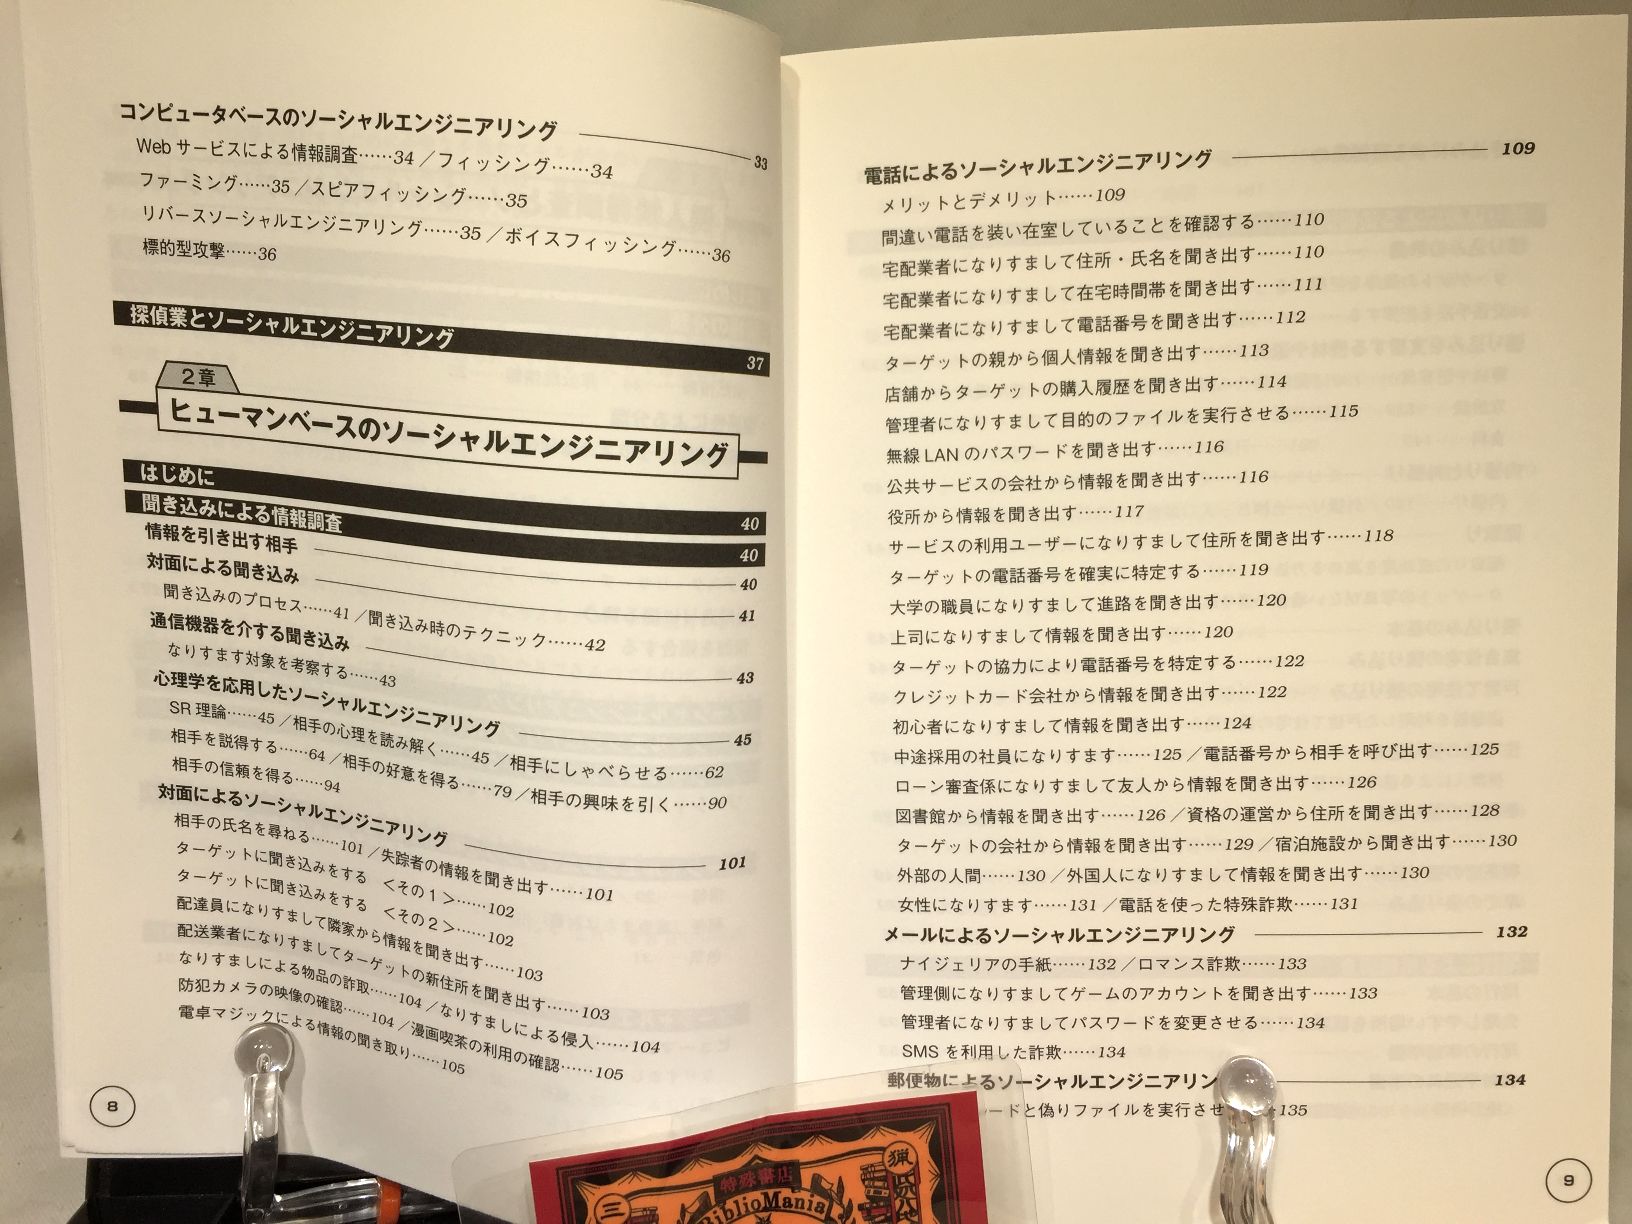 コンピュータベースのソーシャルエンジニアリング 33
Webサービスによる情報調査……34／フィッシング……34
ファーミング……35／スピアフィッシング……35
リバースソーシャルエンジニアリング……35／ボイスフィッシング……36
標的型攻撃……36
探偵業とソーシャルエンジニアリング 37
2章
ヒューマンベースのソーシャルエンジニアリング
はじめに 40
聞き込みによる情報調査 40
情報を引き出す相手 40
対面による聞き込み 41
聞き込みのプロセス……41／聞き込み時のテクニック……42
通信機器を介する聞き込み 43
なりすます対象を考察する……43
心理学を応用したソーシャルエンジニアリング 45
SR理論……45／相手の心理を読み解く……45／相手にしゃべらせる……62
相手を説得する……64／相手の好意を得る……79／相手の興味を引く……90
相手の信頼を得る……94
対面によるソーシャルエンジニアリング 101
相手の氏名を尋ねる……101／失踪者の情報を聞き出す……101
ターゲットに聞き込みをする ＜その1＞……102
ターゲットに聞き込みをする ＜その2＞……102
配達員になりすまして隣家から情報を聞き出す……103
配送業者になりすましてターゲットの新住所を聞き出す……103
なりすましによる物品の詐取……104／なりすましによる侵入……104
防犯カメラの映像の確認……104／漫画喫茶の利用の確認……105
電卓マジックによる情報の聞き取り……105
8
電話によるソーシャルエンジニアリング 109
メリットとデメリット……109
間違い電話を装い在室していることを確認する……110
宅配業者になりすまして住所・氏名を聞き出す……110
宅配業者になりすまして在宅時間帯を聞き出す……111
宅配業者になりすまして電話番号を聞き出す……112
ターゲットの親から個人情報を聞き出す……113
店舗からターゲットの購入履歴を聞き出す……114
管理者になりすまして目的のファイルを実行させる……115
無線LANのパスワードを聞き出す……116
公共サービスの会社から情報を聞き出す……116
役所から情報を聞き出す……117
サービスの利用ユーザーになりすまして住所を聞き出す……118
ターゲットの電話番号を確実に特定する……119
大学の職員になりすまして進路を聞き出す……120
上司になりすまして情報を聞き出す……120
ターゲットの協力により電話番号を特定する……122
クレジットカード会社から情報を聞き出す……122
初心者になりすまして情報を聞き出す……124
中途採用の社員になりすます……125／電話番号から相手を呼び出す……125
ローン審査係になりすまして友人から情報を聞き出す……126
図書館から情報を聞き出す……126／資格の運営から住所を聞き出す……128
ターゲットの会社から情報を聞き出す……129／宿泊施設から聞き出す……130
外部の人間……130／外国人になりすまして情報を聞き出す……130
女性になりすます……131／電話を使った特殊詐欺……131
メールによるソーシャルエンジニアリング 132
ナイジェリアの手紙……132／ロマンス詐欺……133
管理側になりすましてゲームのアカウントを聞き出す……133
管理者になりすましてパスワードを変更させる……134
SMSを利用した詐欺……134
郵便物によるソーシャルエンジニアリン 134
ードと偽りファイルを実行させ 135
9
特殊書店
BiblioMania
猟
三